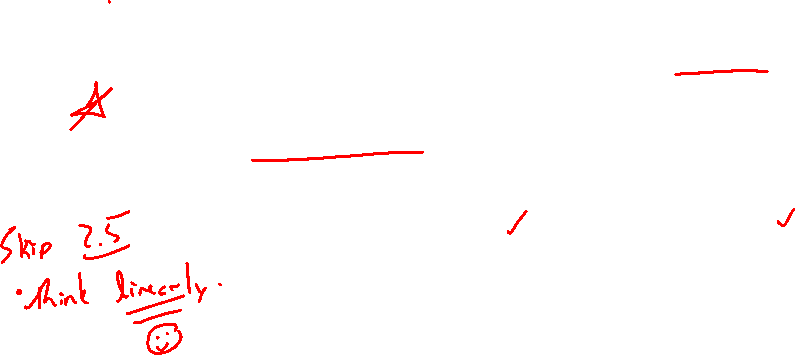 Skip 2.5
• think linearly.